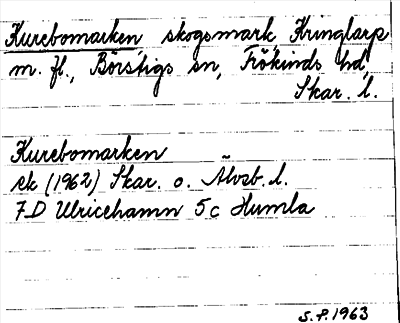 Kurebomarken skogsmark Kringlarp
m. fl., Börstigs sn, Frökinds hd
Skar. l.
Kurebomarken
ek (1962) Skar. o. Älvsb. l.
7D Ulricehamn 5c Humla
S.P. 1963